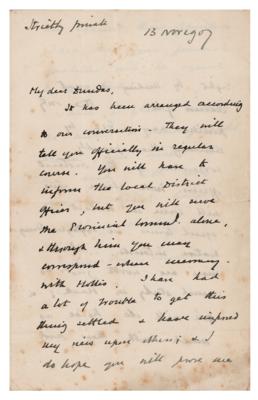 Strictly private
13 Nov 1907
My dear Dundas,
It has been arranged according
to our conversation. They will
tell you officially in regular
course. You will have to
inform the Local District
Officer, but you will serve
the Provincial Commr. alone,
& through him you may
correspond – when necessary
with Hollis. I have had
a lot of trouble to get this
thing settled & have imposed
my views upon others; & I
do hope you will prove me